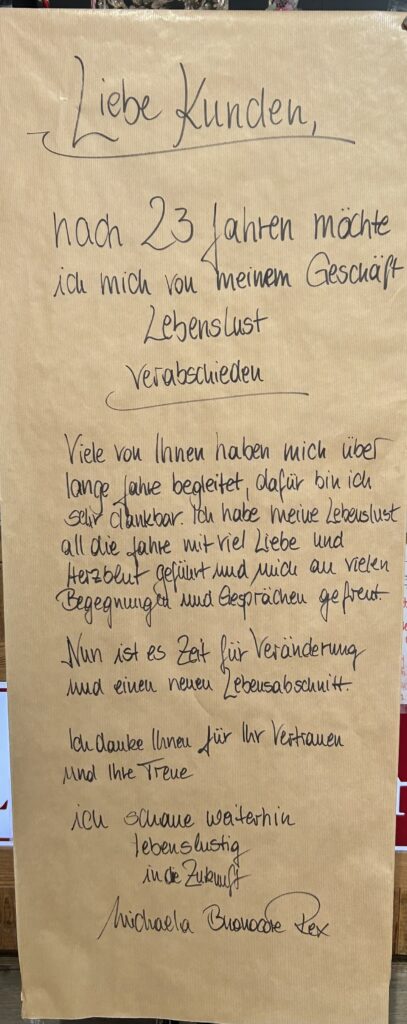 Liebe Kunden,
nach 23 Jahren möchte
ich mich von meinem Geschäft
Lebenslust
verabschieden
Viele von Ihnen haben mich über
lange Jahre begleitet, dafür bin ich
sehr dankbar. Ich habe meine Lebenslust
all die Jahre mit viel Liebe und
Herzblut geführt und mich an vielen
Begegnungen und Gesprächen gefreut.
Nun ist es Zeit für Veränderung
und einen neuen Lebensabschnitt.
Ich danke Ihnen für Ihr Vertrauen
und Ihre Treue
ich schaue weiterhin
lebenslustig
in die Zukunft
Michaela Buonocore Rex